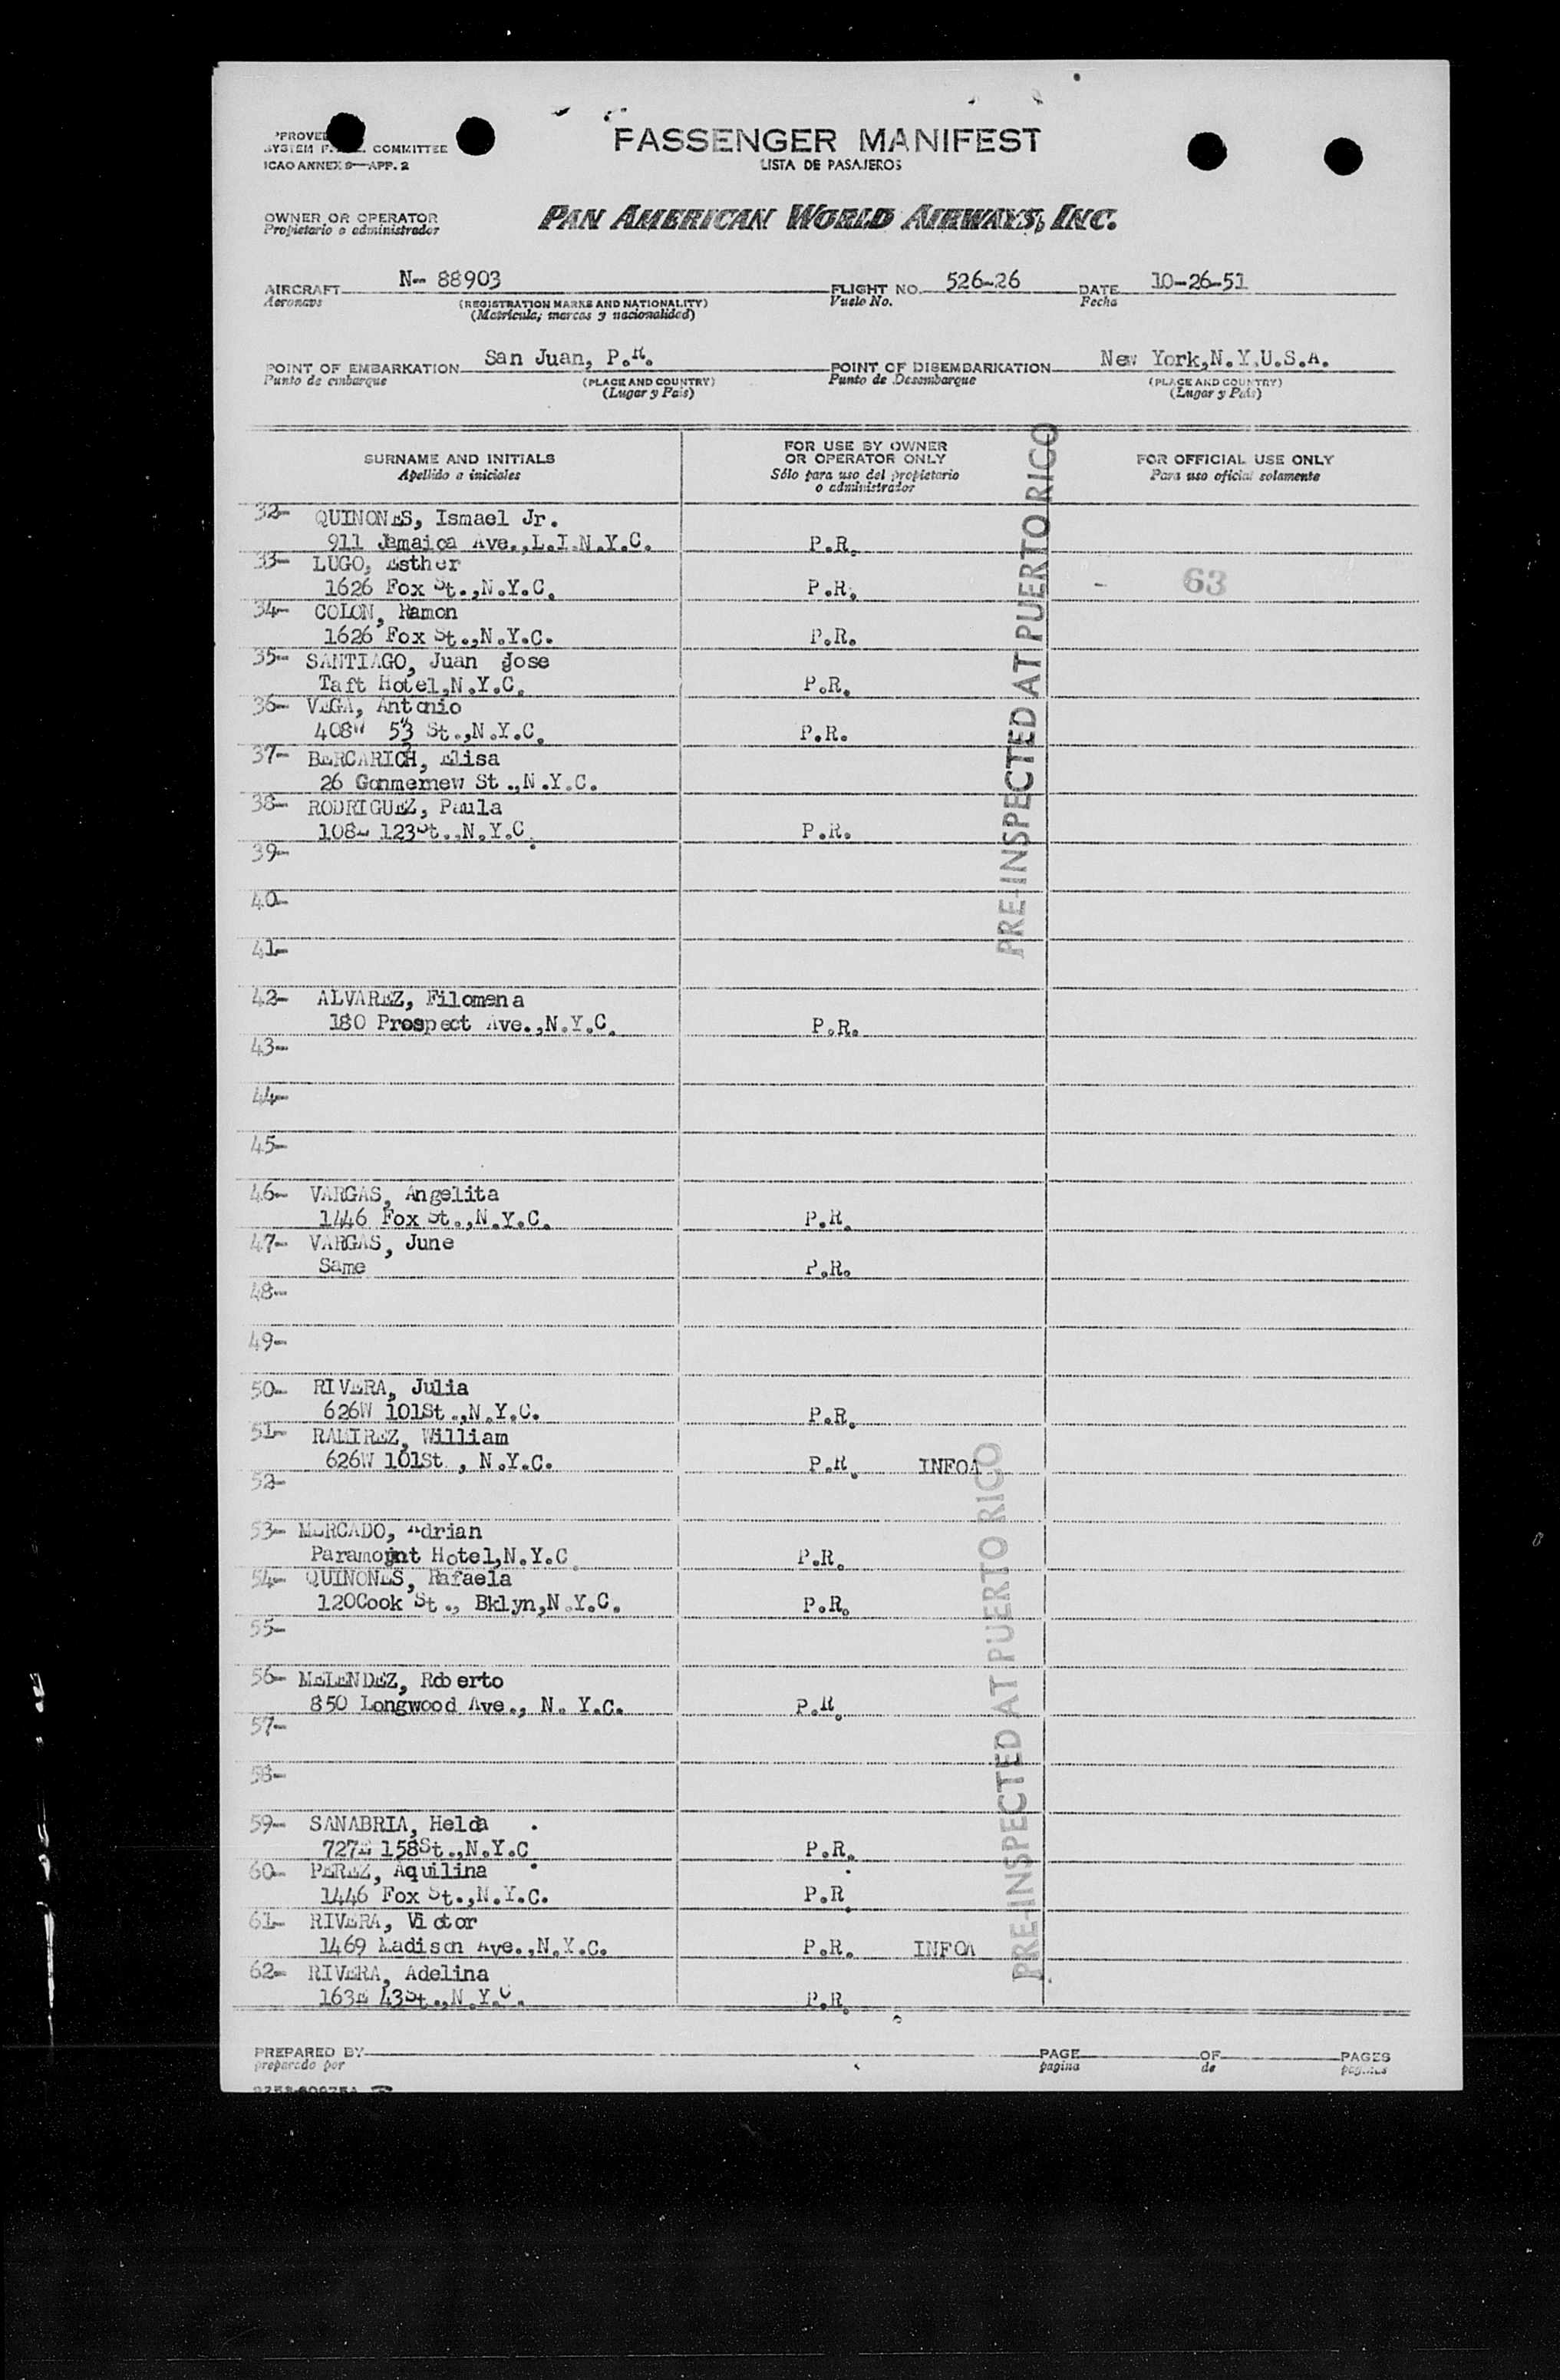 COMMITTEE
ICAO ANNEX 9—APP. 2
PASSENGER MANIFEST
LISTA DE PASAJEROS
OWNER OR OPERATOR
Propietario o administrador
PAN AMERICAN WORLD AIRWAYS, INC.
AIRCRAFT N-- 88903 FLIGHT NO. 526-26 DATE 10-26-51
Aeronave (REGISTRATION MARKS AND NATIONALITY) Vuelo No. Fecha
(Matrícula; marcas y nacionalidad)
POINT OF EMBARKATION San Juan, P.R. POINT OF DISEMBARKATION New York,N.Y.U.S.A.
Punto de embarque (PLACE AND COUNTRY) Punto de Desembarque (PLACE AND COUNTRY)
(Lugar y País) (Lugar y País)
SURNAME AND INITIALS FOR USE BY OWNER OR OPERATOR ONLY FOR OFFICIAL USE ONLY
Apellido e iniciales Sólo para uso del propietario o administrador Para uso oficial solamente
PRE-INSPECTED AT PUERTO RICO
32- QUINONES, Ismael Jr.
911 Jamaica Ave.,L.I.N.Y.C. P.R.
33- LUGO, Esther
1626 Fox St.,N.Y.C. P.R. - 63
34- COLON, Ramon
1626 Fox St.,N.Y.C. P.R.
35- SANTIAGO, Juan Jose
Taft Hotel,N.Y.C. P.R.
36- VEGA, Antonio
408W 53 St.,N.Y.C. P.R.
37- BERCARICH, Elisa
26 Gonmernew St.,N.Y.C.
38- RODRIGUEZ, Paula
108E 123St.,N.Y.C. P.R.
39-
40-
41-
42- ALVAREZ, Filomena
180 Prospect Ave.,N.Y.C. P.R.
43-
44-
45-
46- VARGAS, Angelita
1446 Fox St.,N.Y.C. P.R.
47- VARGAS, June
Same P.R.
48-
49-
50- RIVERA, Julia
626W 101St.,N.Y.C. P.R.
51- RAMIREZ, William
626W 101St., N.Y.C. P.R. INFOA
52-
53- MERCADO, Adrian
Paramount Hotel,N.Y.C. P.R.
54- QUINONES, Rafaela
120Cook St., Bklyn,N.Y.C. P.R.
55-
56- MELENDEZ, Roberto
850 Longwood Ave., N. Y.C. P.R.
57-
58-
59- SANABRIA, Helda
727E 158St.,N.Y.C. P.R.
60- PEREZ, Aquilina
1446 Fox St.,N.Y.C. P.R.
61- RIVERA, Victor
1469 Madison Ave.,N.Y.C. P.R. INFOA
62- RIVERA, Adelina
163E 43St.,N.Y.C. P.R.
PRE-INSPECTED AT PUERTO RICO
PREPARED BY PAGE OF PAGES
preparado por página de páginas